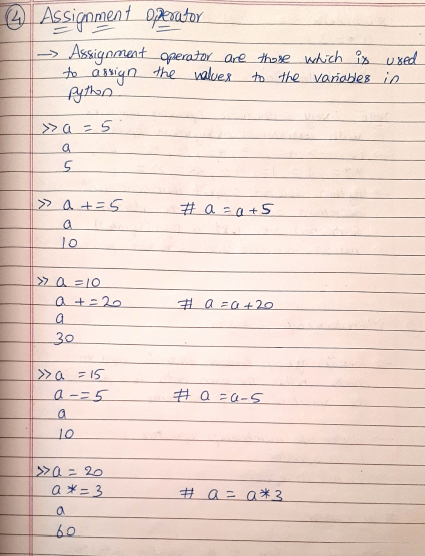 ④ Assignment operator
→ Assignment operator are those which is used
to assign the values to the variables in
Python.
>> a = 5
a
5
>> a += 5 # a = a + 5
a
10
>> a = 10
a += 20 # a = a + 20
a
30
>> a = 15
a -= 5 # a = a - 5
a
10
>> a = 20
a *= 3 # a = a * 3
a
60